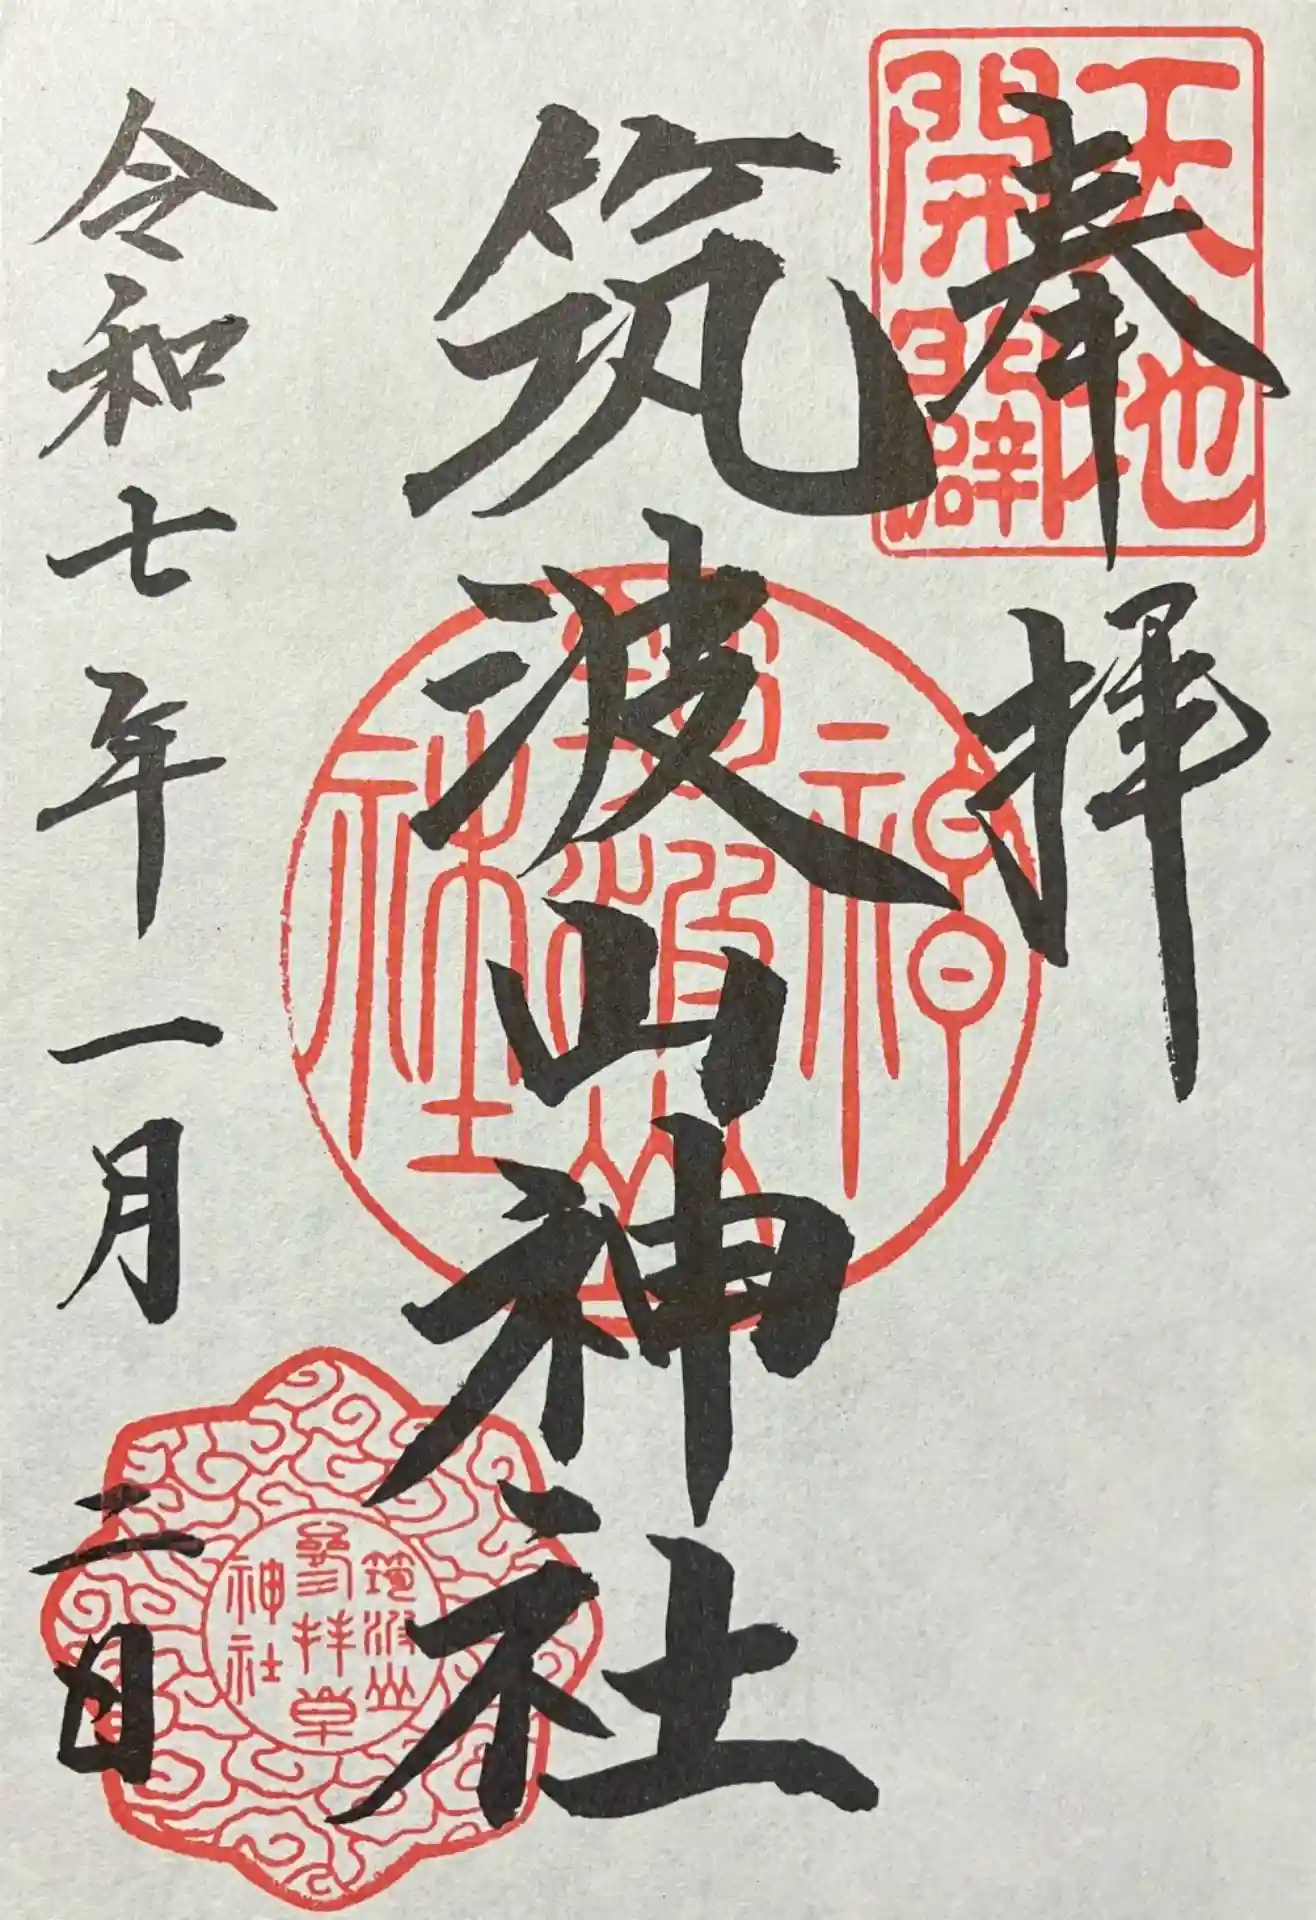 奉拝
天地
開闢
筑波山神社
神
筑波山
社
令和七年一月二日
筑波山
参拝章
神社